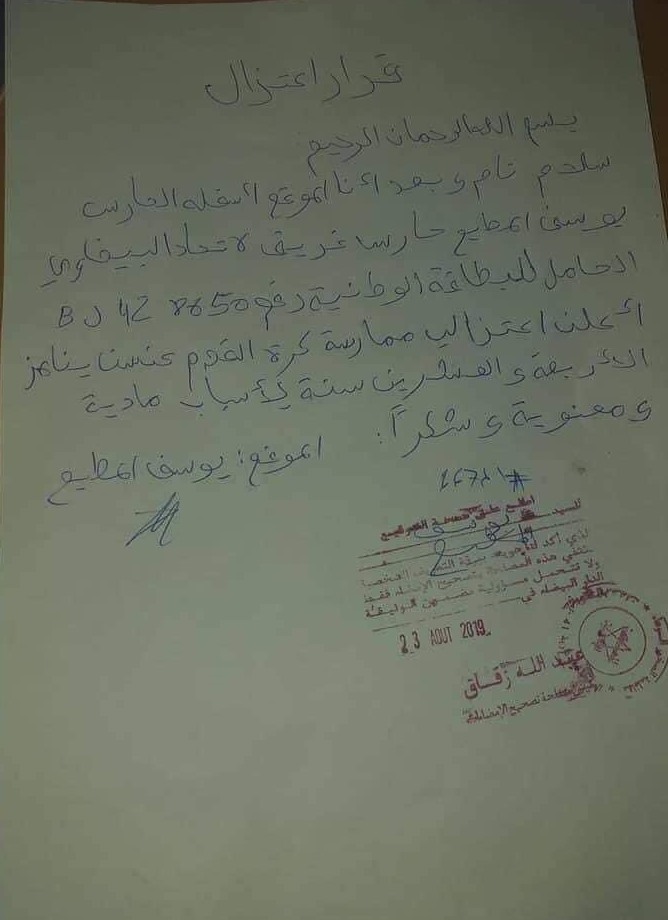 قرار اعتزال
بسم الله الرحمان الرحيم
سلام تام وبعد أنا الموقع أسفله الحارس
يوسف المطيع حارسا فريق لاتحاد البيضاوي
الحامل للبطاقة الوطنية رقم BJ 42 8650
أعلن اعتزالي ممارسة كرة القدم عن سن يناهز
الأربعة والعشرين سنة لأسباب مادية
ومعنوية وشكراً.
الموقع: يوسف المطيع
اطلع على صحة التوقيع
للسيد يوسف
المطيع
ولا تتحمل مسؤولية مضمون الوثيقة
الدار البيضاء في
23 AOUT 2019
عبد الله زقاق
مصلحة تصحيح الإمضاءات